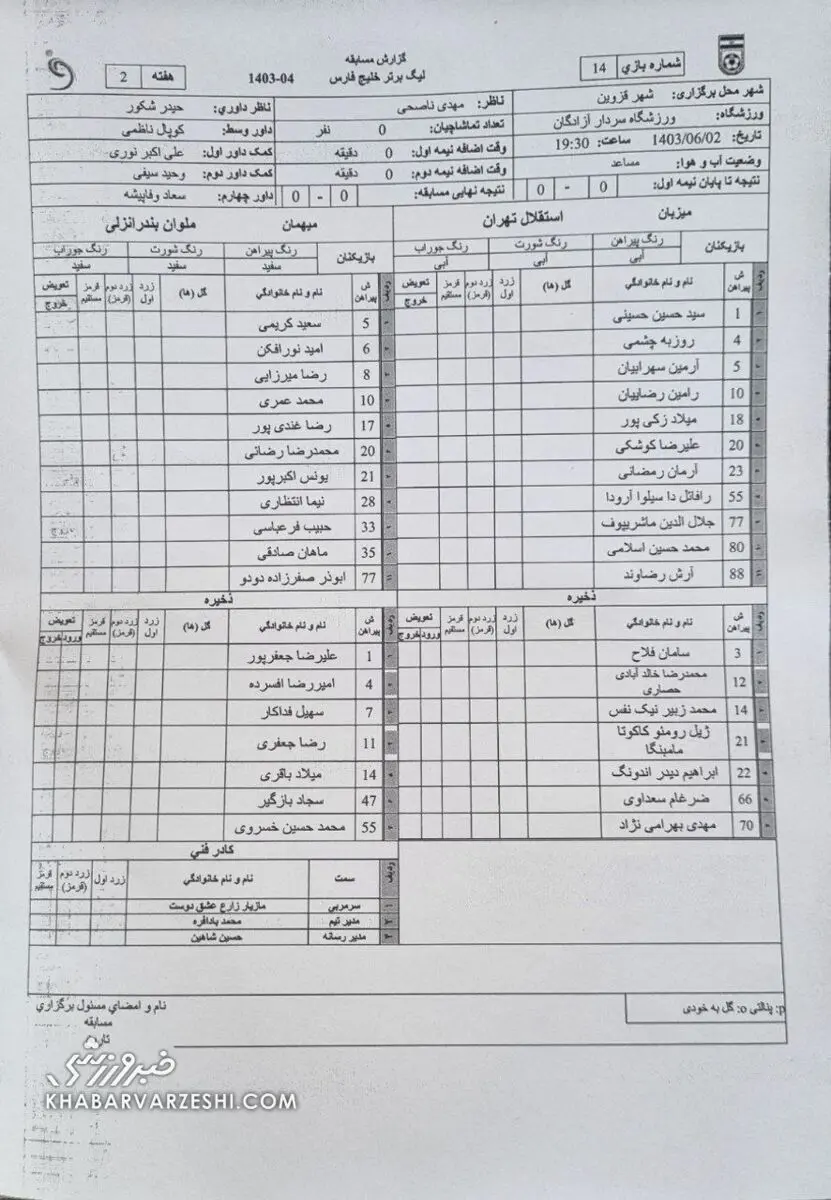 گزارش مسابقه
لیگ برتر خلیج فارس 1403-04
شماره بازي 14
هفته 2
شهر محل برگزاری: شهر قزوین
ورزشگاه: ورزشگاه سردار آزادگان
تاریخ: 1403/06/02 ساعت: 19:30
وضعیت آب و هوا: مساعد
نتیجه تا پایان نیمه اول: 0 - 0
ناظر: مهدی ناصحی
تعداد تماشاچیان: 0 نفر
وقت اضافه نیمه اول: 0 دقیقه
وقت اضافه نیمه دوم: 0 دقیقه
نتیجه نهایی مسابقه: 0 - 0
ناظر داوري: حیدر شکور
داور وسط: کوپال ناظمی
کمک داور اول: علی اکبر نوری
کمک داور دوم: وحید سیفی
داور چهارم: سعاد وفاپیشه
میزبان استقلال تهران
بازیکنان رنگ پیراهن رنگ شورت رنگ جوراب
آبی آبی آبی
ردیف ش پیراهن نام و نام خانوادگي گل (ها) زرد اول زرد دوم (قرمز) قرمز مستقیم تعویض خروج
1 سید حسین حسینی
4 روزبه چشمی
5 آرمین سهرابیان
10 رامین رضاییان
18 میلاد زکی پور
20 علیرضا کوشکی
23 آرمان رمضانی
55 رافائل دا سیلوا آرودا
77 جلال الدین ماشریپوف
80 محمد حسین اسلامی
88 آرش رضاوند
ذخیره
ردیف ش پیراهن نام و نام خانوادگي گل (ها) زرد اول زرد دوم (قرمز) قرمز مستقیم تعویض ورود خروج
3 سامان فلاح
12 محمدرضا خالد آبادی حصاری
14 محمد زبیر نیک نفس
21 ژیل رومئو کاکوتا مامبنگا
22 ابراهیم دیدر اندونگ
66 ضرغام سعداوی
70 مهدی بهرامی نژاد
میهمان ملوان بندرانزلی
بازیکنان رنگ پیراهن رنگ شورت رنگ جوراب
سفید سفید سفید
ردیف ش پیراهن نام و نام خانوادگي گل (ها) زرد اول زرد دوم (قرمز) قرمز مستقیم تعویض خروج
5 سعید کریمی
6 امید نورافکن
8 رضا میرزایی
10 محمد عمری
17 رضا غندی پور
20 محمدرضا رضائی
21 یونس اکبرپور
28 نیما انتظاری
33 حبیب فرعباسی
35 ماهان صادقی
77 ابوذر صفرزاده دودو
ذخیره
ردیف ش پیراهن نام و نام خانوادگي گل (ها) زرد اول زرد دوم (قرمز) قرمز مستقیم تعویض ورود خروج
1 علیرضا جعفرپور
4 امیررضا افسرده
7 سهیل فداکار
11 رضا جعفری
14 میلاد باقری
47 سجاد بازگیر
55 محمد حسین خسروی
کادر فني
ردیف سمت نام و نام خانوادگي زرد اول زرد دوم (قرمز) قرمز مستقیم
سرمربی مازیار زارع عشق دوست
مدیر تیم محمد بادافره
مدیر رسانه حسین شاهین
p: پنالتی o: گل به خودی
نام و امضاي مسئول برگزاري
مسابقه
خبرورزشی
KHABARVARZESHI.COM